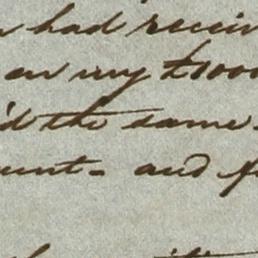 had receiv
on my £1000
'd the same.
unt- and f